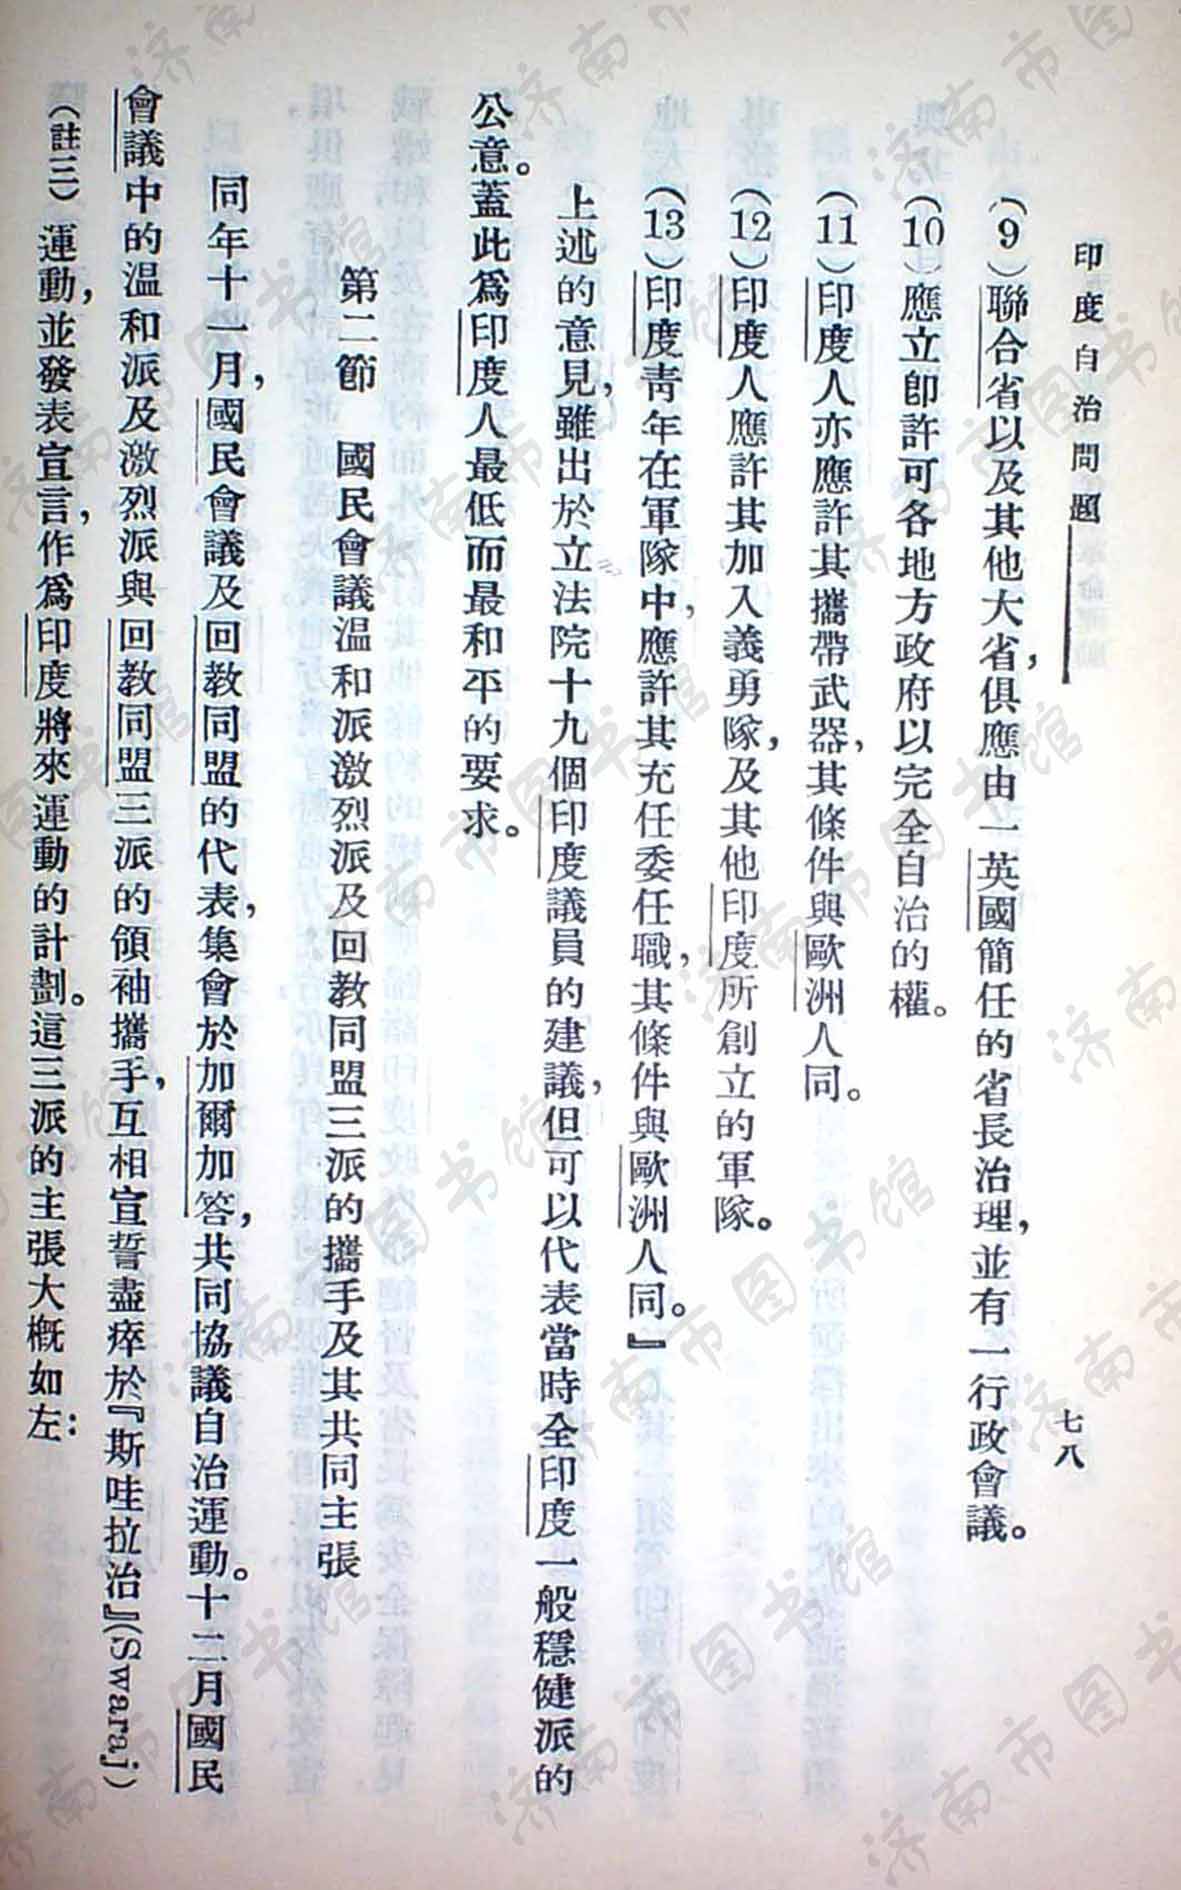 印度自治問題
七八
（9）聯合省以及其他大省，俱應由一英國簡任的省長治理，並有一行政會議。
（10）應立卽許可各地方政府以完全自治的權。
（11）印度人亦應許其攜帶武器，其條件與歐洲人同。
（12）印度人應許其加入義勇隊，及其他印度所創立的軍隊。
（13）印度靑年在軍隊中，應許其充任委任職，其條件與歐洲人同。』
上述的意見，雖出於立法院十九個印度議員的建議，但可以代表當時全印度一般穩健派的
公意。蓋此爲印度人最低而最和平的要求。
第二節　國民會議溫和派激烈派及回敎同盟三派的攜手及其共同主張
同年十一月，國民會議及回敎同盟的代表，集會於加爾加答，共同協議自治運動。十二月國民
會議中的溫和派及激烈派與回敎同盟三派的領袖攜手，互相宣誓盡瘁於『斯哇拉治』（Swaraj）
（註三）運動，並發表宣言，作爲印度將來運動的計劃。這三派的主張大槪如左：
济南市图书馆